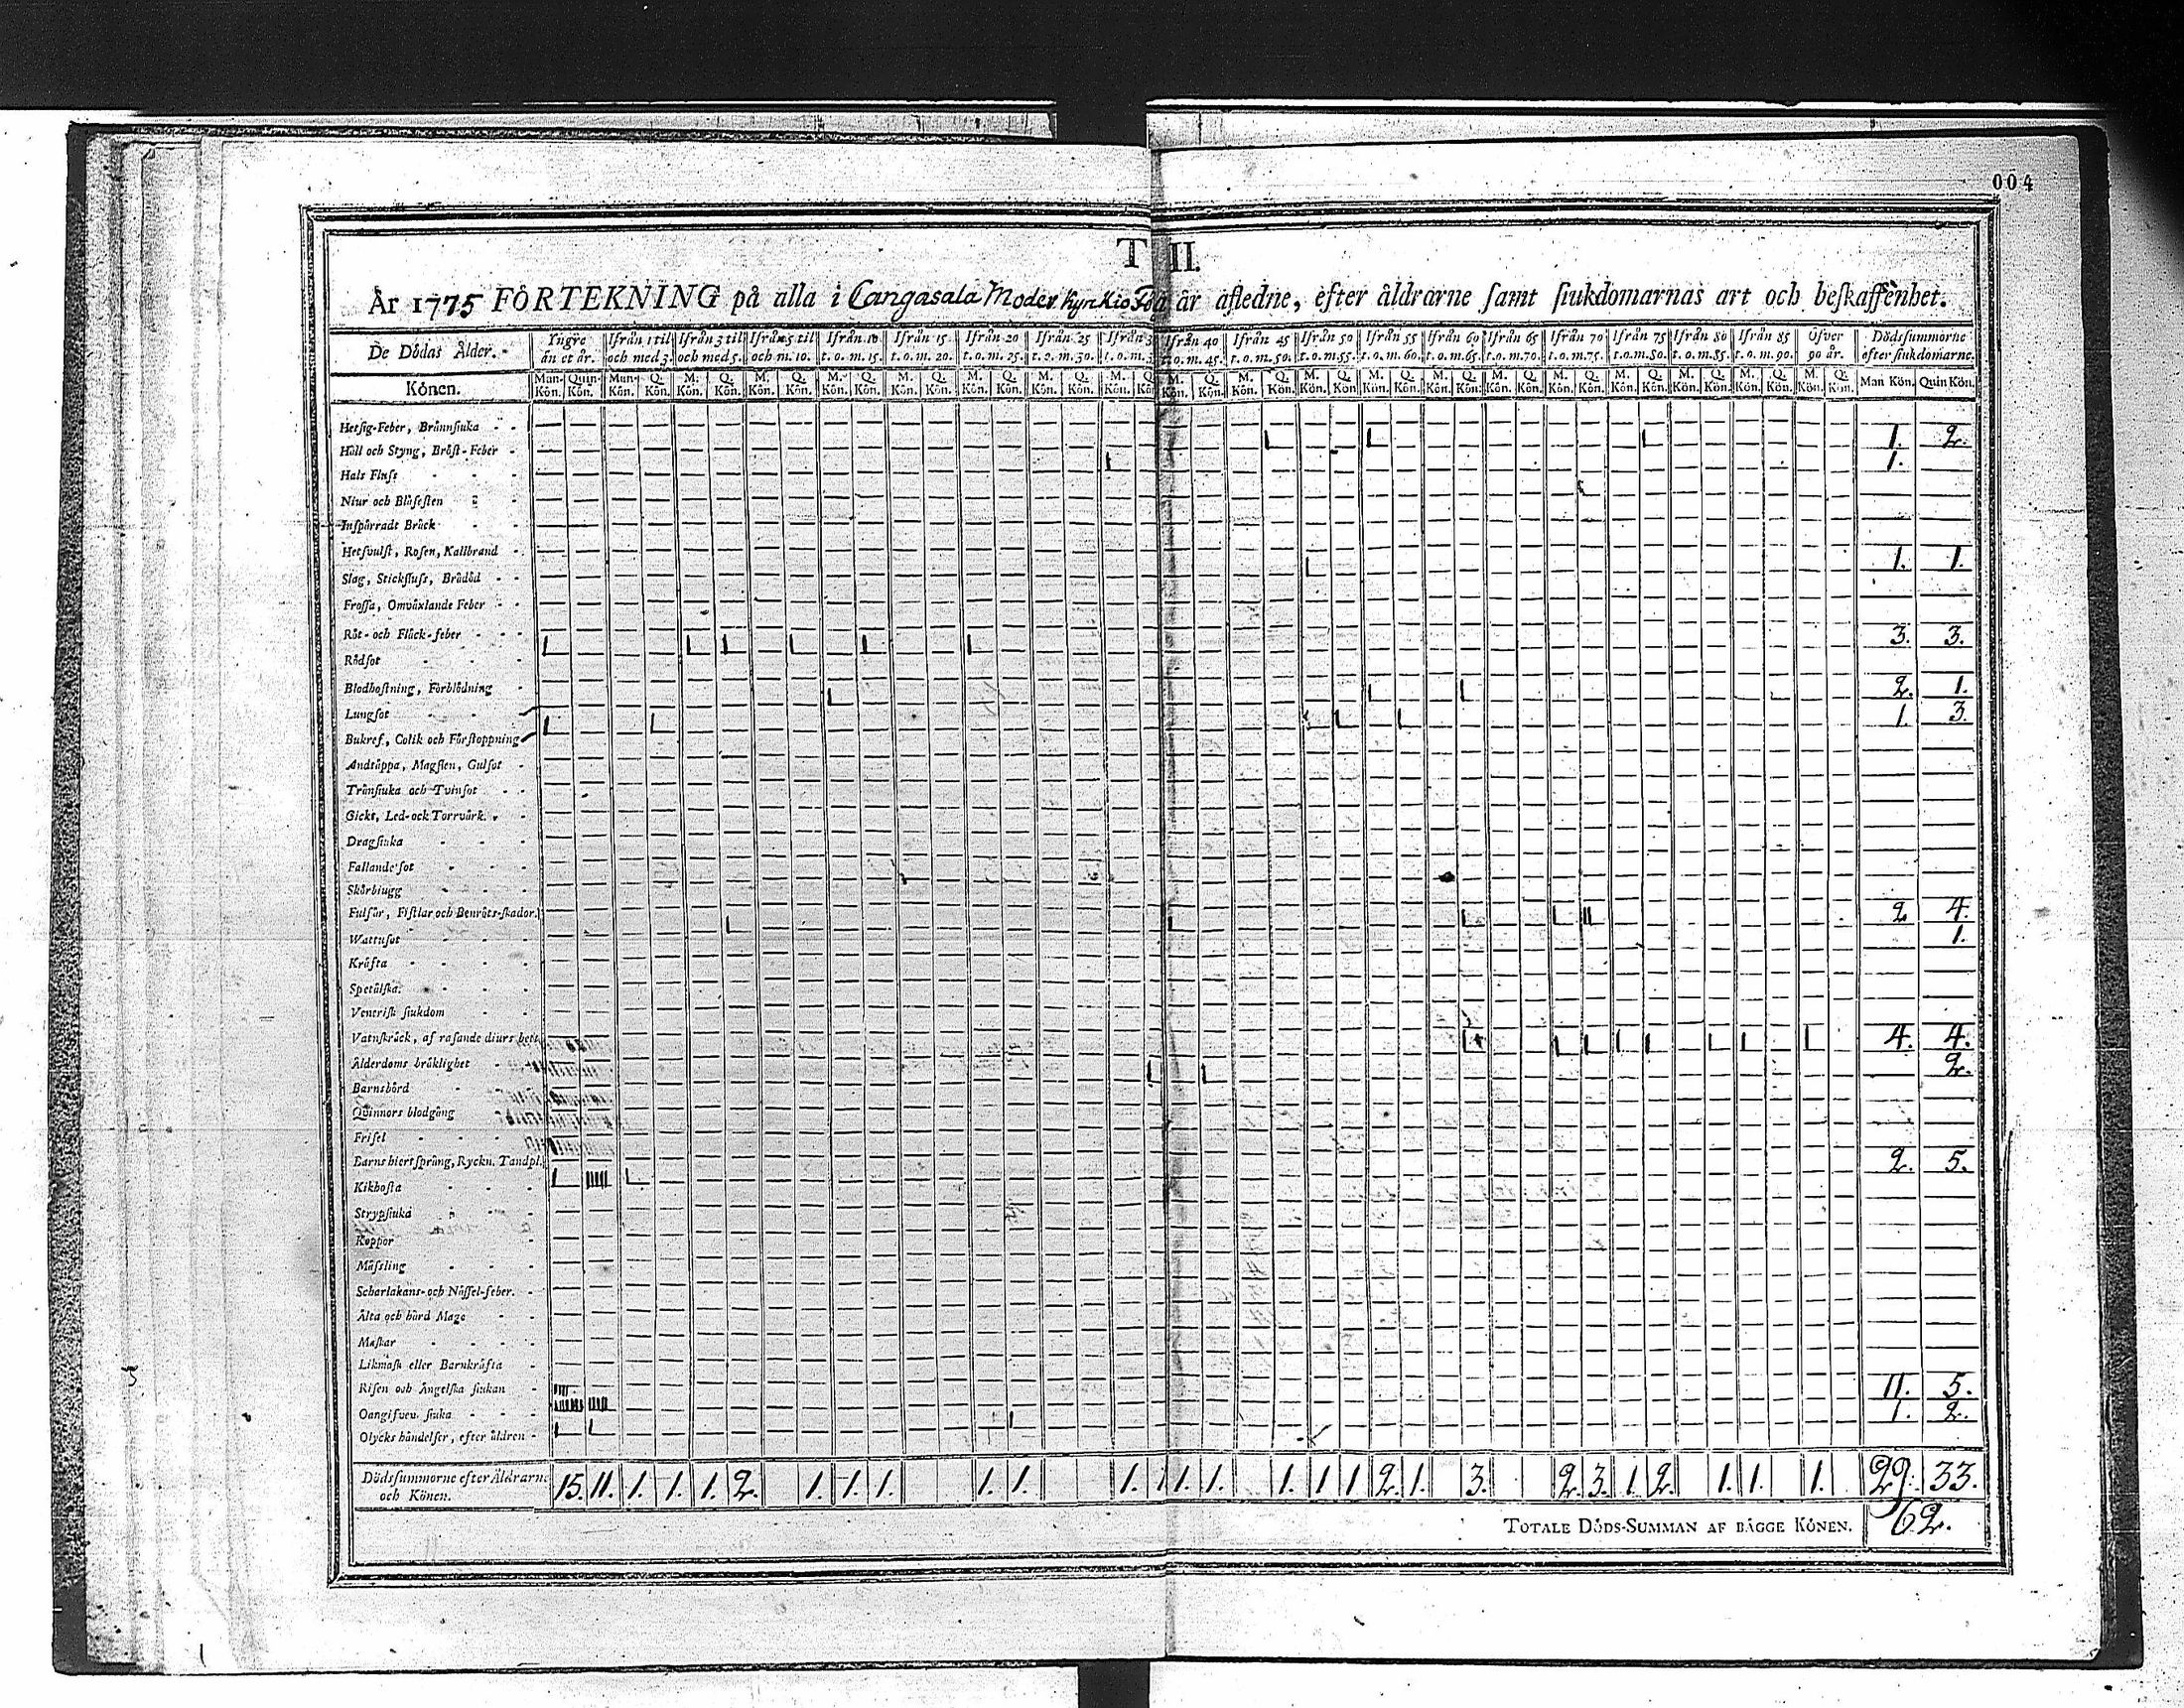 004
T II.
År 1775 FÖRTEKNING på alla i Cangasala Moder Kyrkio är afledne, efter åldrarne samt siukdomarnas art och beskaffenhet.
De Dödas Ålder. Yngre än et år. Ifrån 1 til och med 3. Ifrån 3 til och med 5. Ifrån 5 til och m. 10. Ifrån 10 t. o. m. 15. Ifrån 15 t. o. m. 20. Ifrån 20 t. o. m. 25. Ifrån 25 t. o. m. 30. Ifrån 40 t. o. m. 45. Ifrån 45 t. o. m. 50. Ifrån 50 t. o. m. 55. Ifrån 55 t. o. m. 60. Ifrån 60 t. o. m. 65. Ifrån 65 t. o. m. 70. Ifrån 70 t. o. m. 75. Ifrån 75 t. o. m. 80. Ifrån 80 t. o. m. 85. Ifrån 85 t. o. m. 90. Öfver 90 år. Dödssummorne efter siukdomarne.
Könen. Man-Kön. Quin-Kön. Man-Kön. Q. Kön. M. Kön. Q. Kön. M. Kön. Q. Kön. M. Kön. Q. Kön. M. Kön. Q. Kön. M. Kön. Q. Kön. M. Kön. Q. Kön. M. Kön. M. Kön. Q. Kön. M. Kön. Q. Kön. M. Kön. Q. Kön. M. Kön. Q. Kön. M. Kön. Q. Kön. M. Kön. Q. Kön. M. Kön. Q. Kön. M. Kön. Q. Kön. M. Kön. Q. Kön. M. Kön. Q. Kön. M. Kön. Q. Kön. Man Kön. Quin Kön.
Hetsig-Feber, Brännsiuka
Håll och Styng, Bröst-Feber 1. 2.
Hals Fluss 1.
Niur och Blåsesten
Inspärradt Bråck
Hetsvulst, Rosen, Kallbrand
Slag, Stickfluss, Brådöd 1. 1.
Frossa, Omväxlande Feber
Röt- och Fläck-feber 3. 3.
Rödsot
Blodhostning, Förblödning 2. 1.
Lungsot 1. 3.
Bukref, Colik och Förstoppning
Andtäppa, Magsten, Gulsot
Trånsiuka och Tvinsot
Gickt, Led- ock Torrvärk
Dragsiuka
Fallandesot
Skörbiugg
Fulsår, Fistlar och Benröts-skador. 2 4.
Wattusot 1.
Kräfta
Spetälska
Venerisk siukdom
Vatnskräck, af rasande diurs bett 4. 4.
Ålderdoms bräklighet 2.
Barnsbörd
Quinnors blodgång
Frisel
Barns hiertspräng, Ryckn. Tandpl. 2. 5.
Kikhosta
Strypsiuka
Koppor
Mässling
Scharlakans- och Nässel-feber.
Älta och hård Mage
Maskar
Likmask eller Barnkräfta
Risen och Ängelska siukan 11. 5.
Oangifven siuka 1. 2.
Olycks händelser, efter åldren
Dödssummorne efter Åldrarne 15. 11. 1. 1. 1. 2. 1. 1. 1. 1. 1. 1. 1. 1. 1. 1. 1. 2. 1. 3. 2. 3. 1. 2. 1. 1. 1. 29. 33.
och Könen.
TOTALE DÖDS-SUMMAN AF BÄGGE KÖNEN. 62.